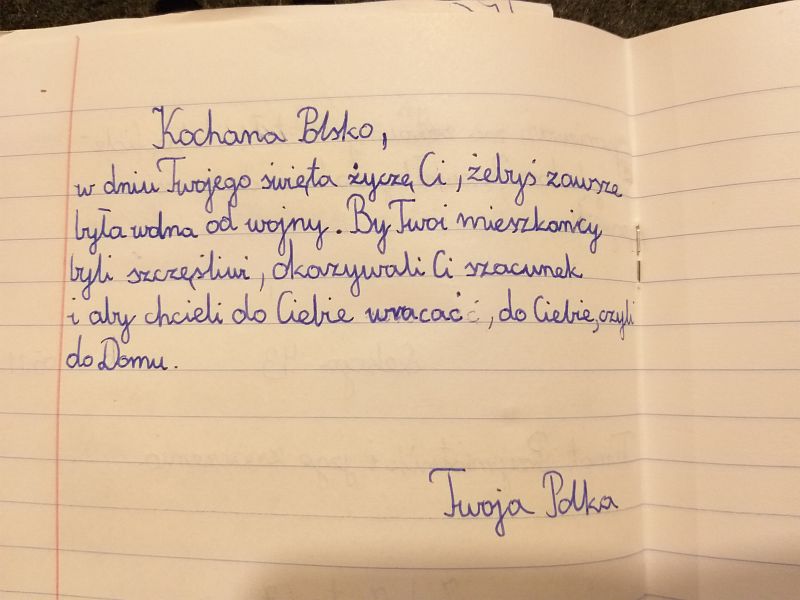 Kochana Polsko,
w dniu Twojego święta życzę Ci, żebyś zawsze
była wolna od wojny. By Twoi mieszkańcy
byli szczęśliwi, okazywali Ci szacunek
i aby chcieli do Ciebie wracać, do Ciebie, czyli
do Domu.
Twoja Polka